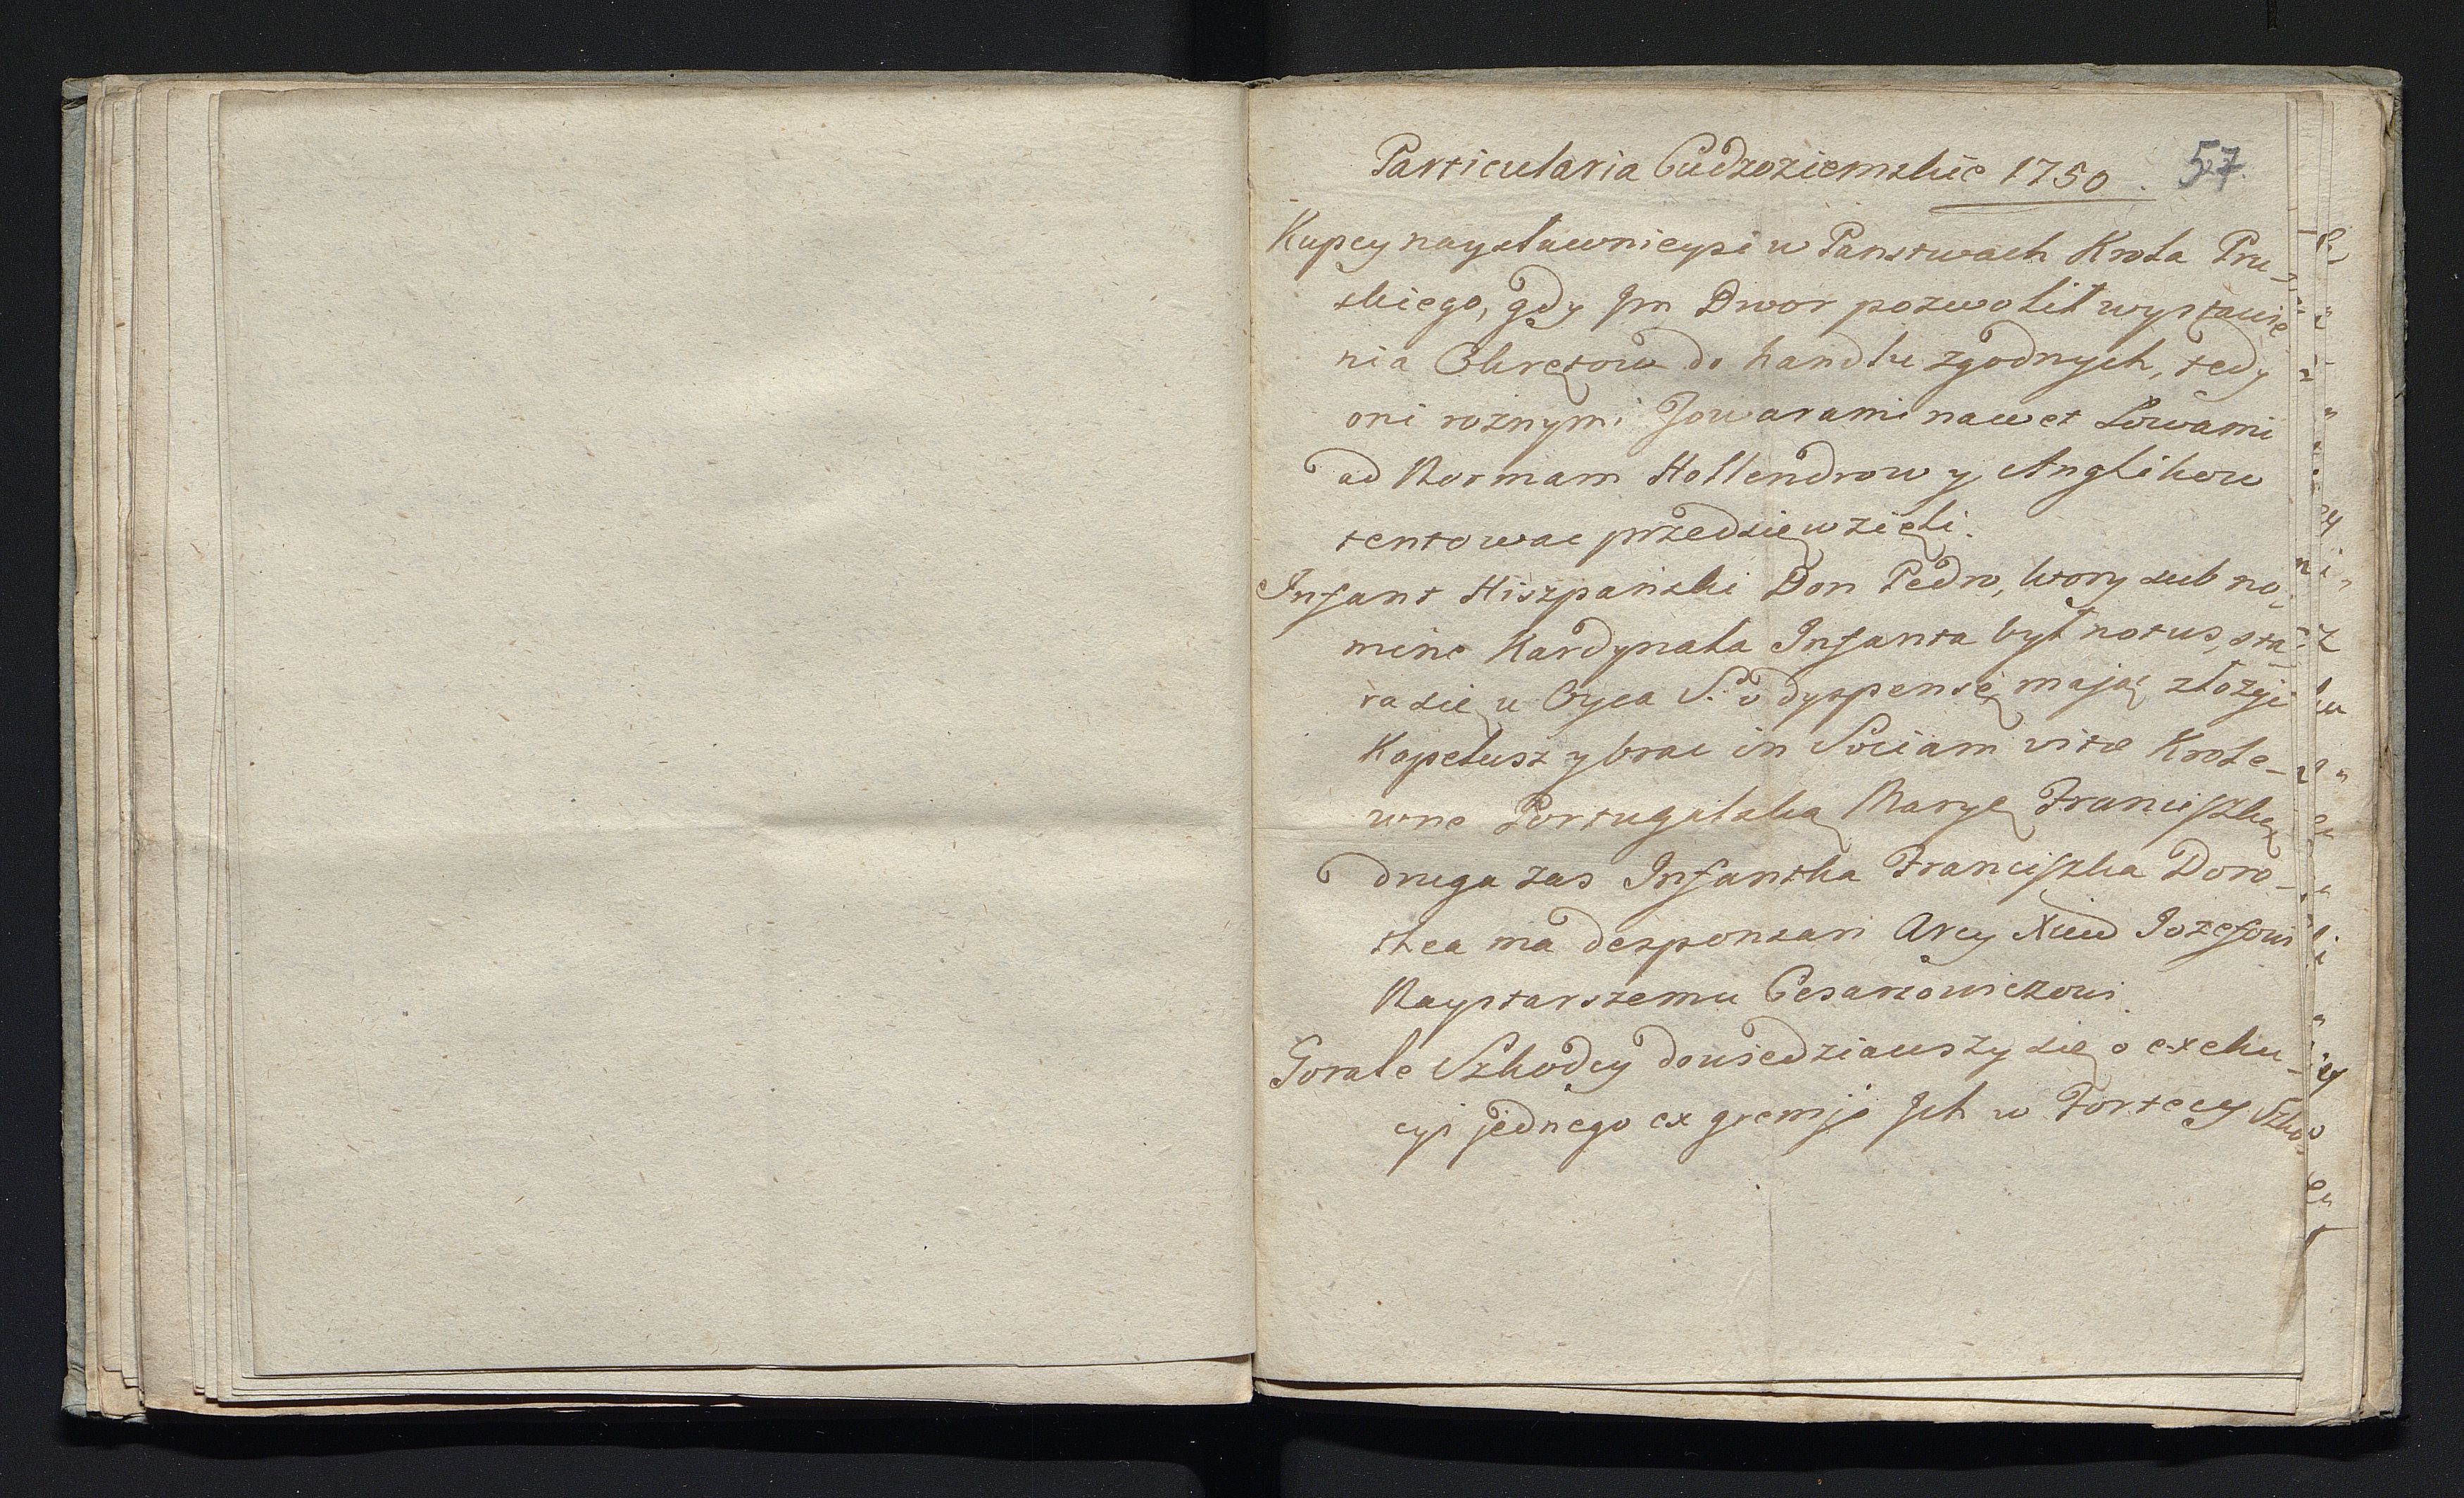 Particularia Cudzoziemskie 1750. 57.
Kupcy naysławnieysi w Panstwach Krola Pru-
skiego, gdy Jm Dwor pozwolił wystawie
nia Okrętow do handlu zgodnych, tedy
oni rożnymi Towarami nawet
ad Normam Hollendrow y Anglikow
tentowac przedsięwzięli.
Infant Hiszpański Don Pedro, ktory sub no-
mine Kardynała Infanta był notus, sta-
ra się u Oyca S. o dyspensę mając złożyć
Kapelusz y brac in Sociam vitæ Krole-
wne Portugalską Maryę Franciszkę
druga zas Infantka Franciszka Doro-
thea ma desponsari Arcy Xciu Iozefowi
Naystarszemu Cesarzowiczowi.
Gorale Szkodcy dowiedziawszy się o exeku-
cyi jednego ex gremjo Jch w Fortecy Szko-